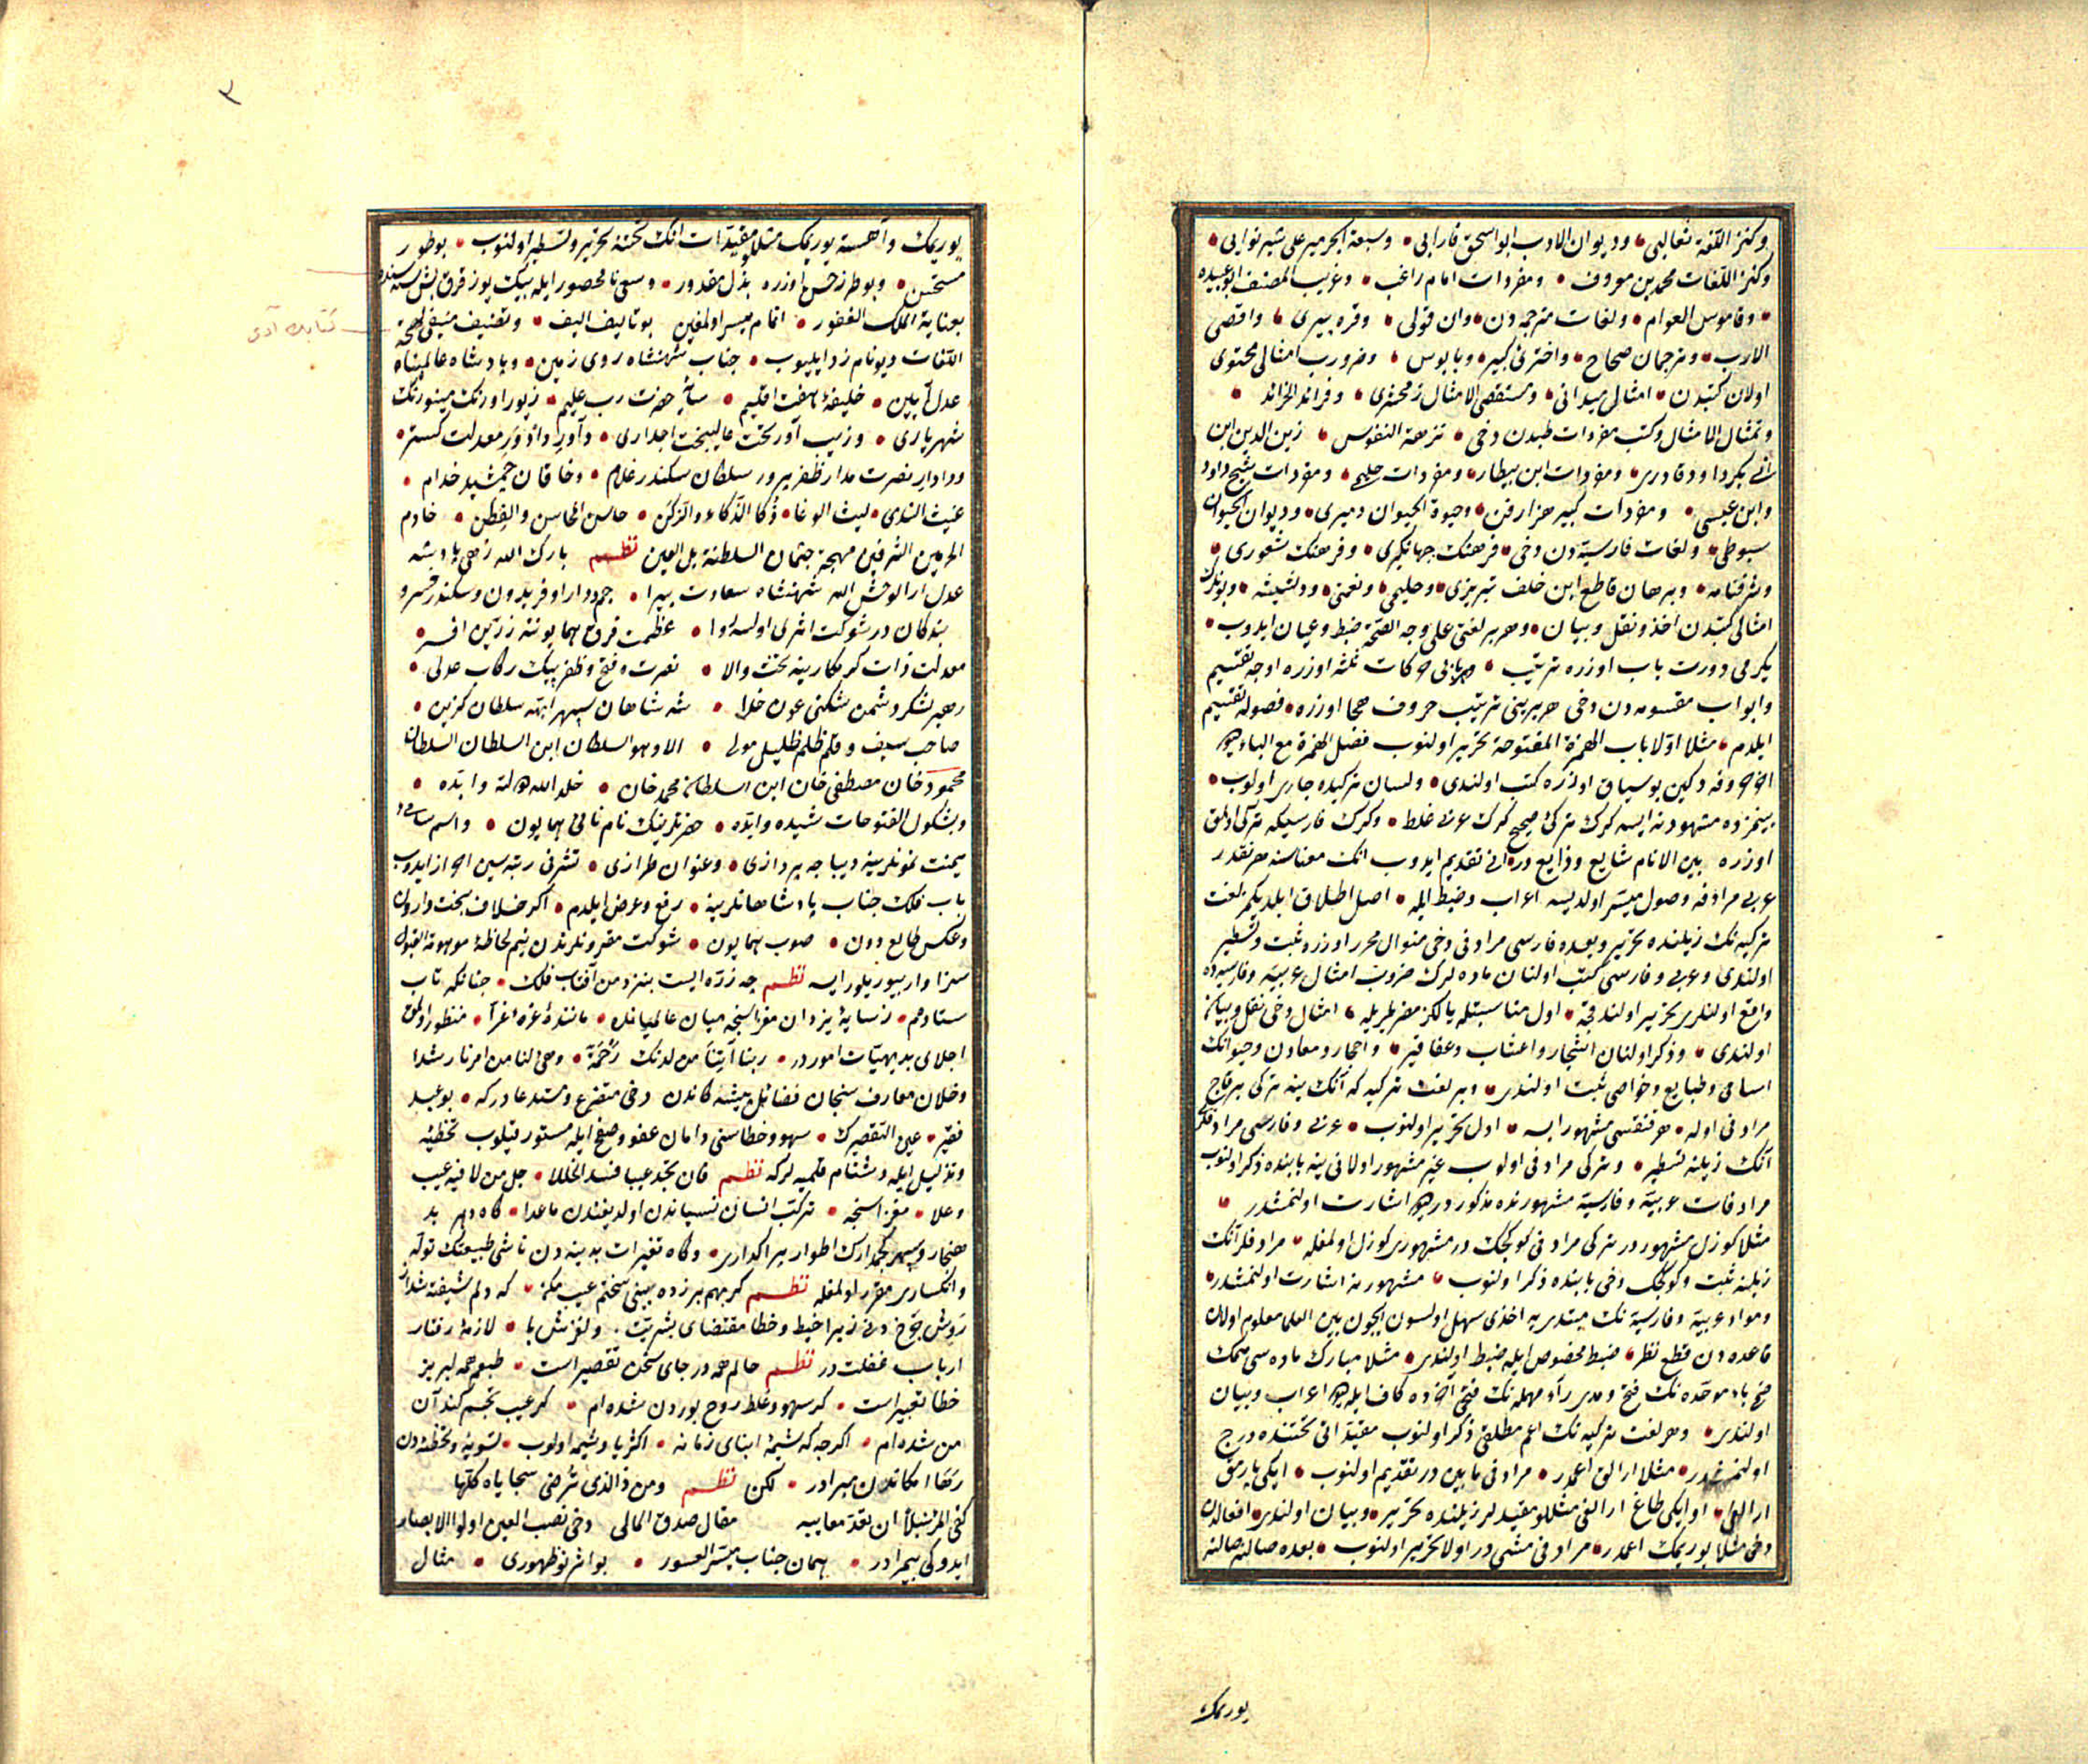 وكنز اللغة ثعالبی ودیوان الادب ابو اسحق فارابی وسبعة ابحر میر علی شیر نوایی
وكنز اللغات محمد بن معروف ومفردات امام راغب وغریب المصنف ابو عبیده
وقاموس العوام ولغات مترجمه دن وان قولی وقره پیری واقصی
الارب وترجمان صحاح واختری كبیر وبابوس وضروب امثالی محتوی
اولان كتبدن امثال میدانی ومستقصی الامثال زمخشری وفرائد الخرائد
وتمثال الامثال وكتب مفردات طبدن دخی نزهة النفوس زین الدین ابن
ابی بكر داود قادری ومفردات ابن بیطار ومفردات حلیمی ومفردات شیخ داود
وابن عیسی ومفردات كبیر هزارفن وحیوة الحیوان دمیری ودیوان الحیوان
سیوطی ولغات فارسیه دن دخی فرهنك جهانكیری وفرهنك شعوری
وشرفنامه وبرهان قاطع ابن خلف تبریزی وحلیمی ونعمتی ودشیشه وبونلرك
امثالی كتبدن اخذ ونقل وبیان وهر بر لغتی علی وجه الصحه ضبط وعیان ایدوب
یكرمی دورت باب اوزره ترتیب هر بابی حركات ثلثه اوزره اوجه تقسیم
وابواب مقسومه دن دخی هر برینی ترتیب حروف هجا اوزره فصوله تقسیم
ایلدم مثلا اولا باب الهمزة المفتوحة تحریر اولنوب فصل الهمزة مع الباء
آخر حروفه دكین بو سیاق اوزره كتب اولندی ولسان تركیده جاری اولوب
بینمزده مشهود نه ایسه كرك تركی صحیح كرك عربی غلط وكرك فارسیكه تركی اولمق
اوزره بین الانام شایع وذایع در انی تقدیم ایدوب انك معناسنه هر نقدر
عربی مرادفه وصول میسر اولدیسه اعراب وضبط ایله اصل اطلاق ایلدیكم لغت
تركیه نك زیلنده تحریر وبعده فارسی مرادفی دخی منوال محرر اوزره ثبت وتسطیر
اولندی وعربی وفارسی كتب اولنان ماده لرك ضروب امثال عربیه وفارسیه ده
واقع اولنلری تحریر اولندقجه اول مناسبتله یالكز مصرعلریله امثال دخی نقل وبیان
اولندی وذكر اولنان اشجار واعشاب وعقاقیر واحجار ومعادن وحیوانك
اسامی وطبایع وخواصی ثبت اولندی وبر لغت تركیه كه آنك ینه تركی بر قاچ
مرادفی اوله هر قنقیسی مشهور ایسه اول تحریر اولنوب عربی وفارسی مرادفلری
آنك زیلنه تسطیر وتركی مرادفی اولوب غیر مشهور اولانی ینه بابنده ذكر اولنوب
مرادفات عربیه وفارسیه مشهورنده مذكوردر دیو اشارت اولنمشدر
مثلا كوزل مشهوردر تركی مرادفی كوكچك در مشهوری كوزل اولمغله مرادفلر آنك
زیلنه ثبت وكوكچك دخی بابنده ذكر اولنوب مشهورینه اشارت اولنمشدر
ومواد عربیه وفارسیه نك مبتدی یه اخذی سهل اولسون ایچون بین العلما معلوم اولان
قاعده دن قطع نظر ضبط مخصوص ایله ضبط اولندی مثلا مبارك ماده سی ممك
ضمی باء موحده نك فتح ومدی راء مهمله نك فتحی آخرده كاف ایله دیو اعراب وبیان
اولندی وهر لغت تركیه نك اعم مطلقی ذكر اولنوب مقیداتی تحتنده درج
اولنمشدر مثلا ارالق اعمدر مرادفی مابین در تقدیم اولنوب ایكی پارمق
ارالغی او ایكی طاغ ارالغی مثللو مقیدلر زیلنده تحریر وبیان اولندی افعالدن
دخی مثلا یوریمك اعمدر مرادفی مشی در اولا تحریر اولنوب بعده صالنه صالنه
یوریمك
٣
یوریمك وآهسته یوریمك مثللو مقیدات انك تحتنه تحریر وتسطیر اولنوب بو طور
مستحسن وبو طرز حسن اوزره بذل مقدور وسعی نامحصور ایله بیك یوز قرق بش سنه سنده
بعنایة الملك الغفور اتمام میسر اولمغین بو تالیف الیف وتصنیف منیفی لهجة
كتابك آدی
اللغات دیو نامزد ایلیوب جناب شهنشاه روی زمین وپادشاه عالمپناه
عدل آیین خلیفۀ هفت اقلیم سایۀ حضرت رب علیم زیور اورنك مینورنك
شهریاری وزیب آور تخت عالیبخت اجداری داور معدلت كستر
ودادار نصرت مدار ظفرپرور سلطان سكندر غلام وخاقان جمشید خدام
غیث الندی لیث الوغا ذكا الذكاء والزكن حاسن المحاسن والفطن خادم
الحرمین الشرفین مهجة جثمان السلطنة بل العین نظم بارك الله زهی پادشه
عدل آرا لوحش الله شهنشاه سعادت پیرا جم ودارا وفریدون وسكندر خسرو
بندكان در شوكت اثری اولسه روا عظمت فرق همایوننه زرین افسر
معدلت ذات كرمكارینه تخت والا نصرت وفتح وظفر پیك ركاب عدلی
رهبر لشكر دشمن شكنی عون خدا شه شاهان سپهر ابهه سلطان كزین
صاحب سیف وقلم ظلم ظلیل مولی الا وهو السلطان ابن السلطان السلطان
محمود خان مصطفی خان ابن السلطان محمد خان خلد الله دولته وابده
وبشكول الفتوحات شیده وایده حضرتلرینك نام نامی همایون واسم سامی
یمنت نمونلرینه دیباجه پردازی وعنوان طرازی تشرفی رتبه سین احراز ایدوب
باب فلك جناب پادشاهانلرینه رفع وعرض ایلدم اكر خلاف بخت وارون
وعكس طالع دون صوب همایون شوكت مقرونلرندن نیم لحاظۀ موهوبة القبول
سزاوار بیوریلور ایسه نظم چه ذره ایست بنزد من آفتاب فلك چنانكه تاب
ستادم ز سایۀ یزدان مغزاسنجه میان عالمیانده مانندۀ غرۀ غرا منظور اولمق
اجلای بدیهیات اموردر ربنا آتنا من لدنك رحمة وهیئ لنا من امرنا رشدا
وخلان معارف سنجان فضائل پیشه كاندن دخی متضرع ومستدعادر كه بو عبد
فقیر عین التقصیرك سهو وخطاسنی دامان عفو وصفح ایله مستور قیلوب تخطئه
وتزلیل ایله دشنام قلمیه لركه نظم فان تجد عیبا فسد الخللا جل من لا فیه عیب
وعلا مغزاسنجه تركب انسان نسیاندن اولدیغندن ماعدا گاه دهر بد
هنجار وسپهر كجمدارك اطوار پر اكداری وگاه تغیرات بدنیه دن ناشی طبیعتك توله
وانكساری مقرر اولمغله نظم كر بهم برزده بینی سخنم عیب مكن كه دلم شیفته شد از
روش چرخ دنی زیرا خبط وخطا مقتضای بشریت ولغزش پا لازمۀ رفتار
ارباب غفلت در نظم حالم همه در جای سخن تقصیر است طبعم همه لبریز
خطا تعبیر است كر سهو وغلط روح بوردن شده ام كر عیب تجسم كند آن
من شده ام اكرچه كه شیمۀ ابنای زمانه اكثریا وشیمه اولوب تسویه وتخطئه دن
رها امكاندن مبرادر لكن نظم ومن ذا الذی ترضی سجایاه كلها
كفی المرء نبلا ان تعد معایبه مقال صدق المالی دخی نصب العین اولوا الابصار
ایدوكی بیمرادر همان جناب میسر العسور بو اثر نو ظهوری مثال